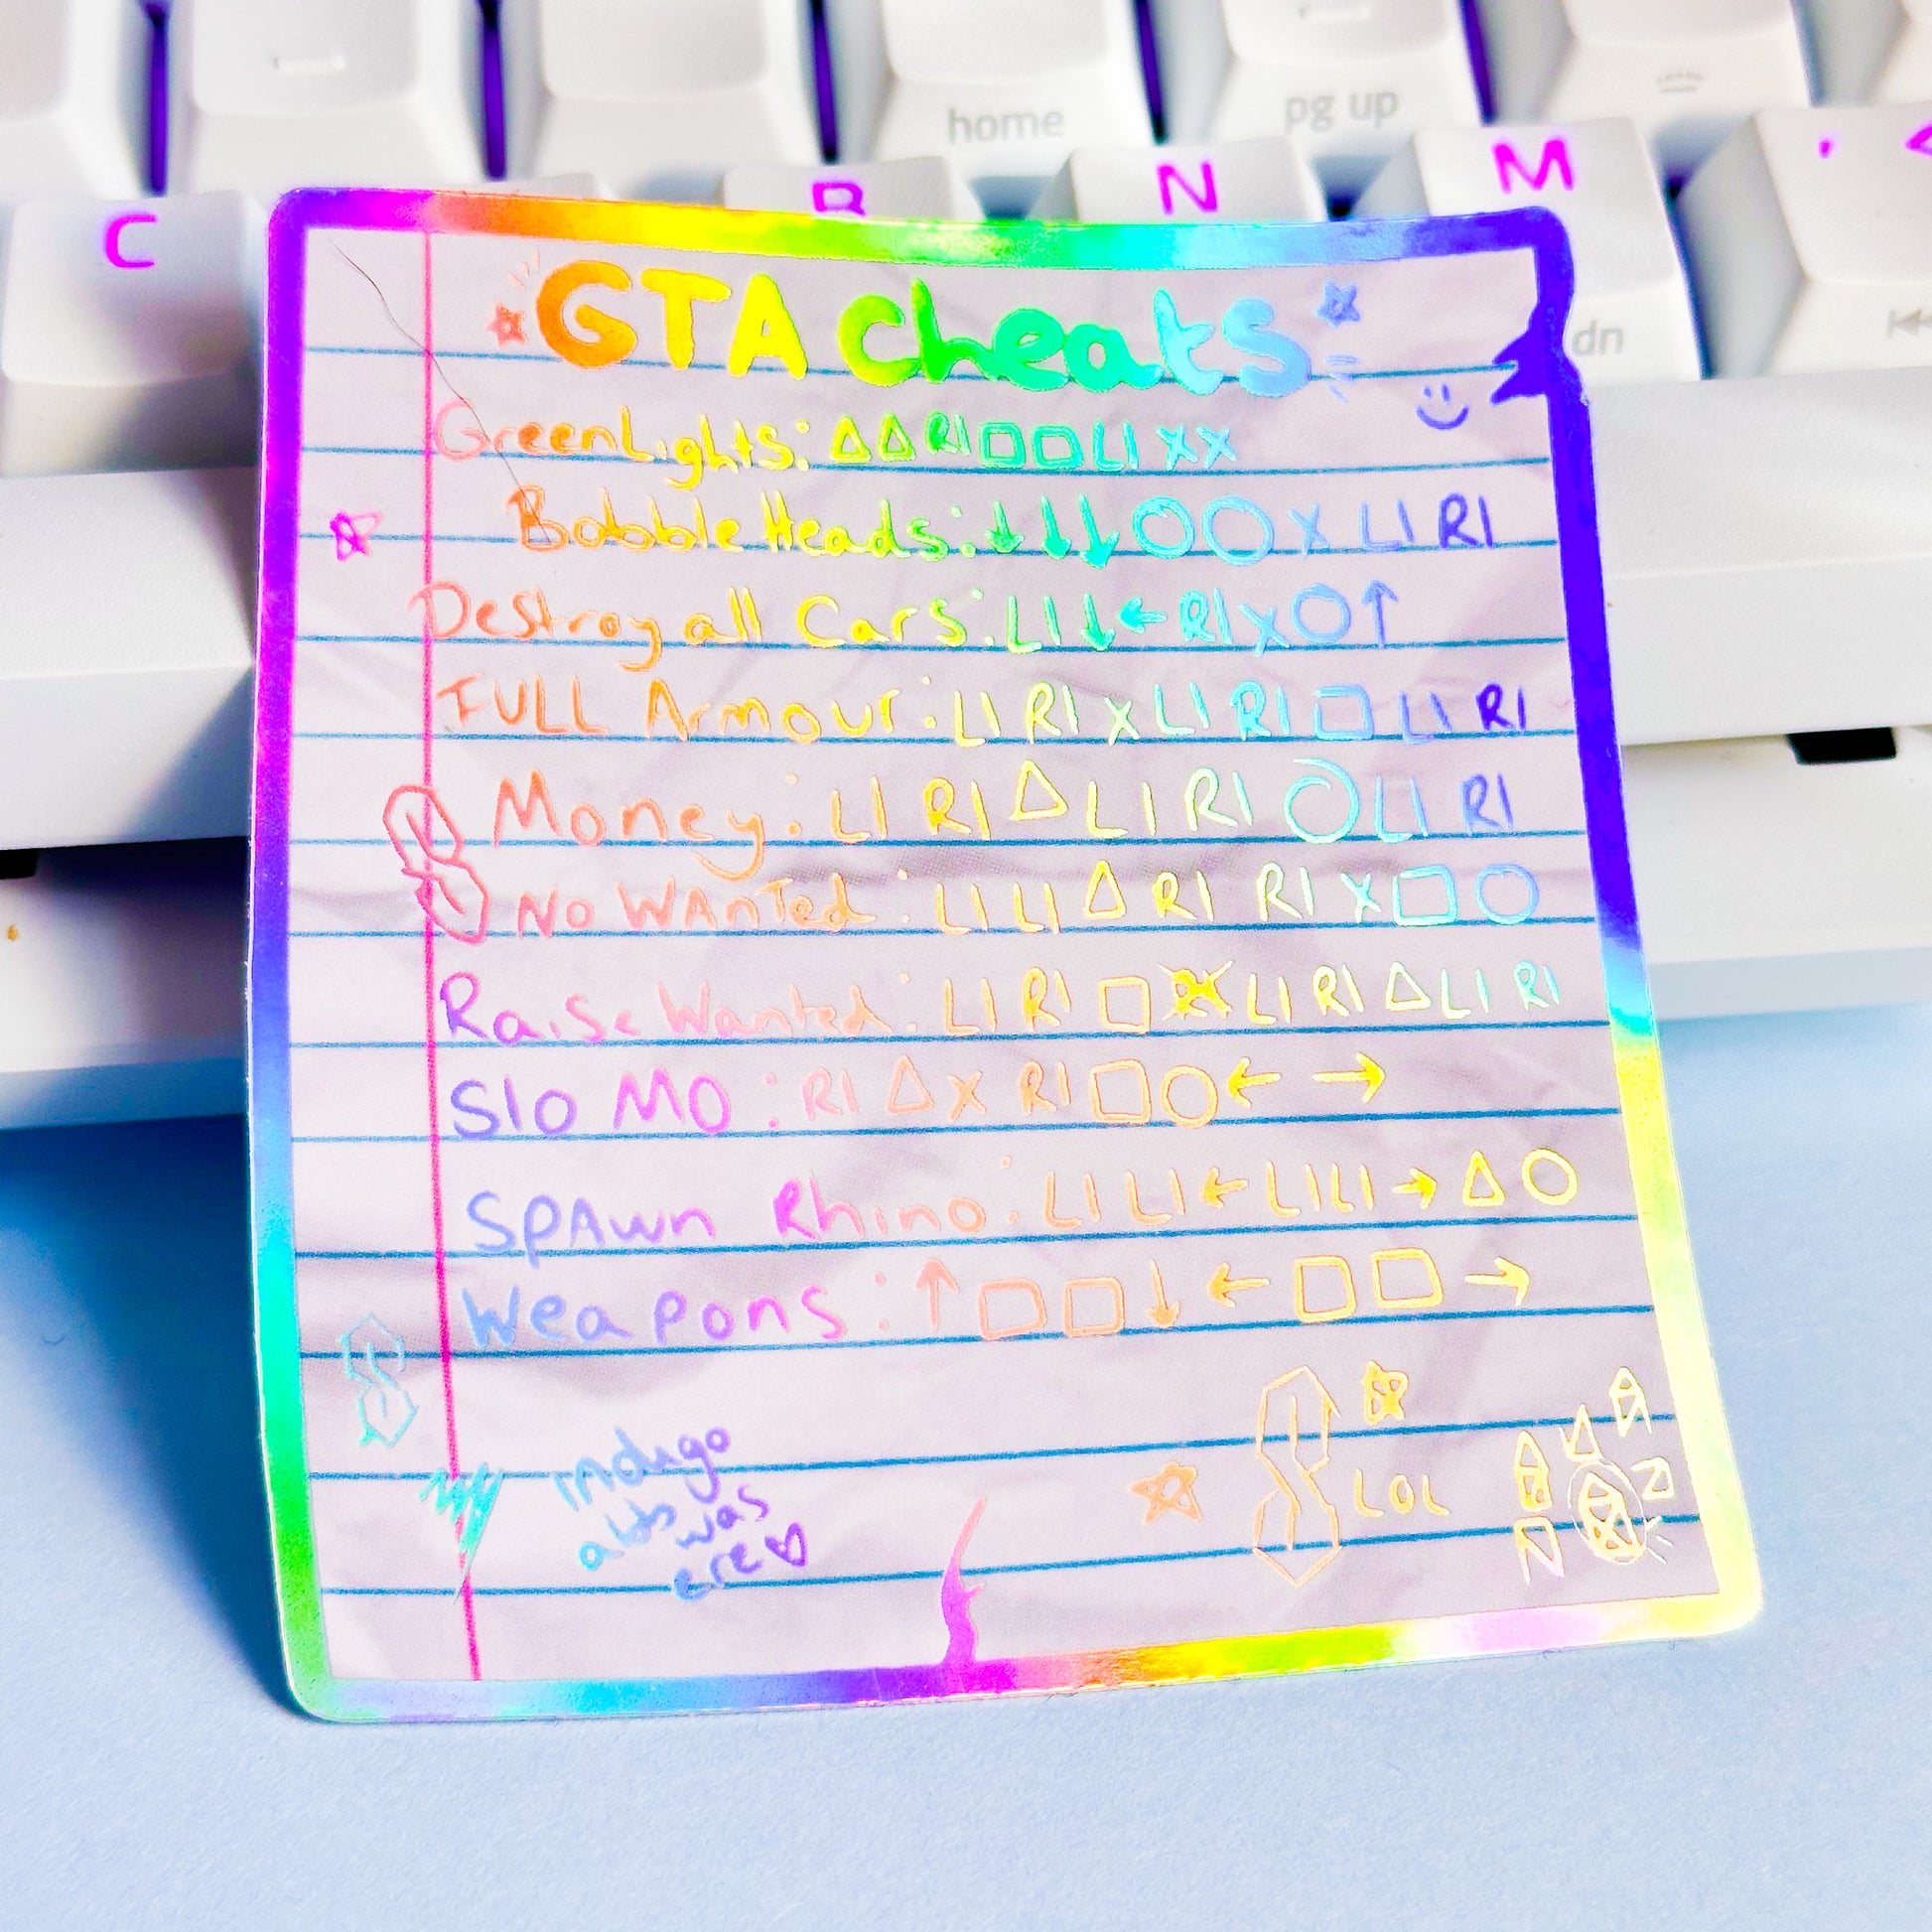 home
pg up
C
B
N
M
dn
GTA cheats
GreenLights: △△ R1 □□ L1 XX
Bobble Heads: ↓↓↓ ○○ X L1 R1
Destroy all Cars: L1 ↓ ← R1 X ○ ↑
FULL Armour: L1 R1 X L1 R1 □ L1 R1
Money: L1 R1 △ L1 R1 ○ L1 R1
No WAnTed: L1 L1 △ R1 R1 X □ ○
Raise Wanted: L1 R1 □ L1 R1 △ L1 R1
Slo MO: R1 △ X R1 □ ○ ← →
SPAwn Rhino: L1 L1 ← L1 L1 → △ ○
Weapons: ↑ □□ ↓ ← □□ →
indigo
was
ere ♡
LOL